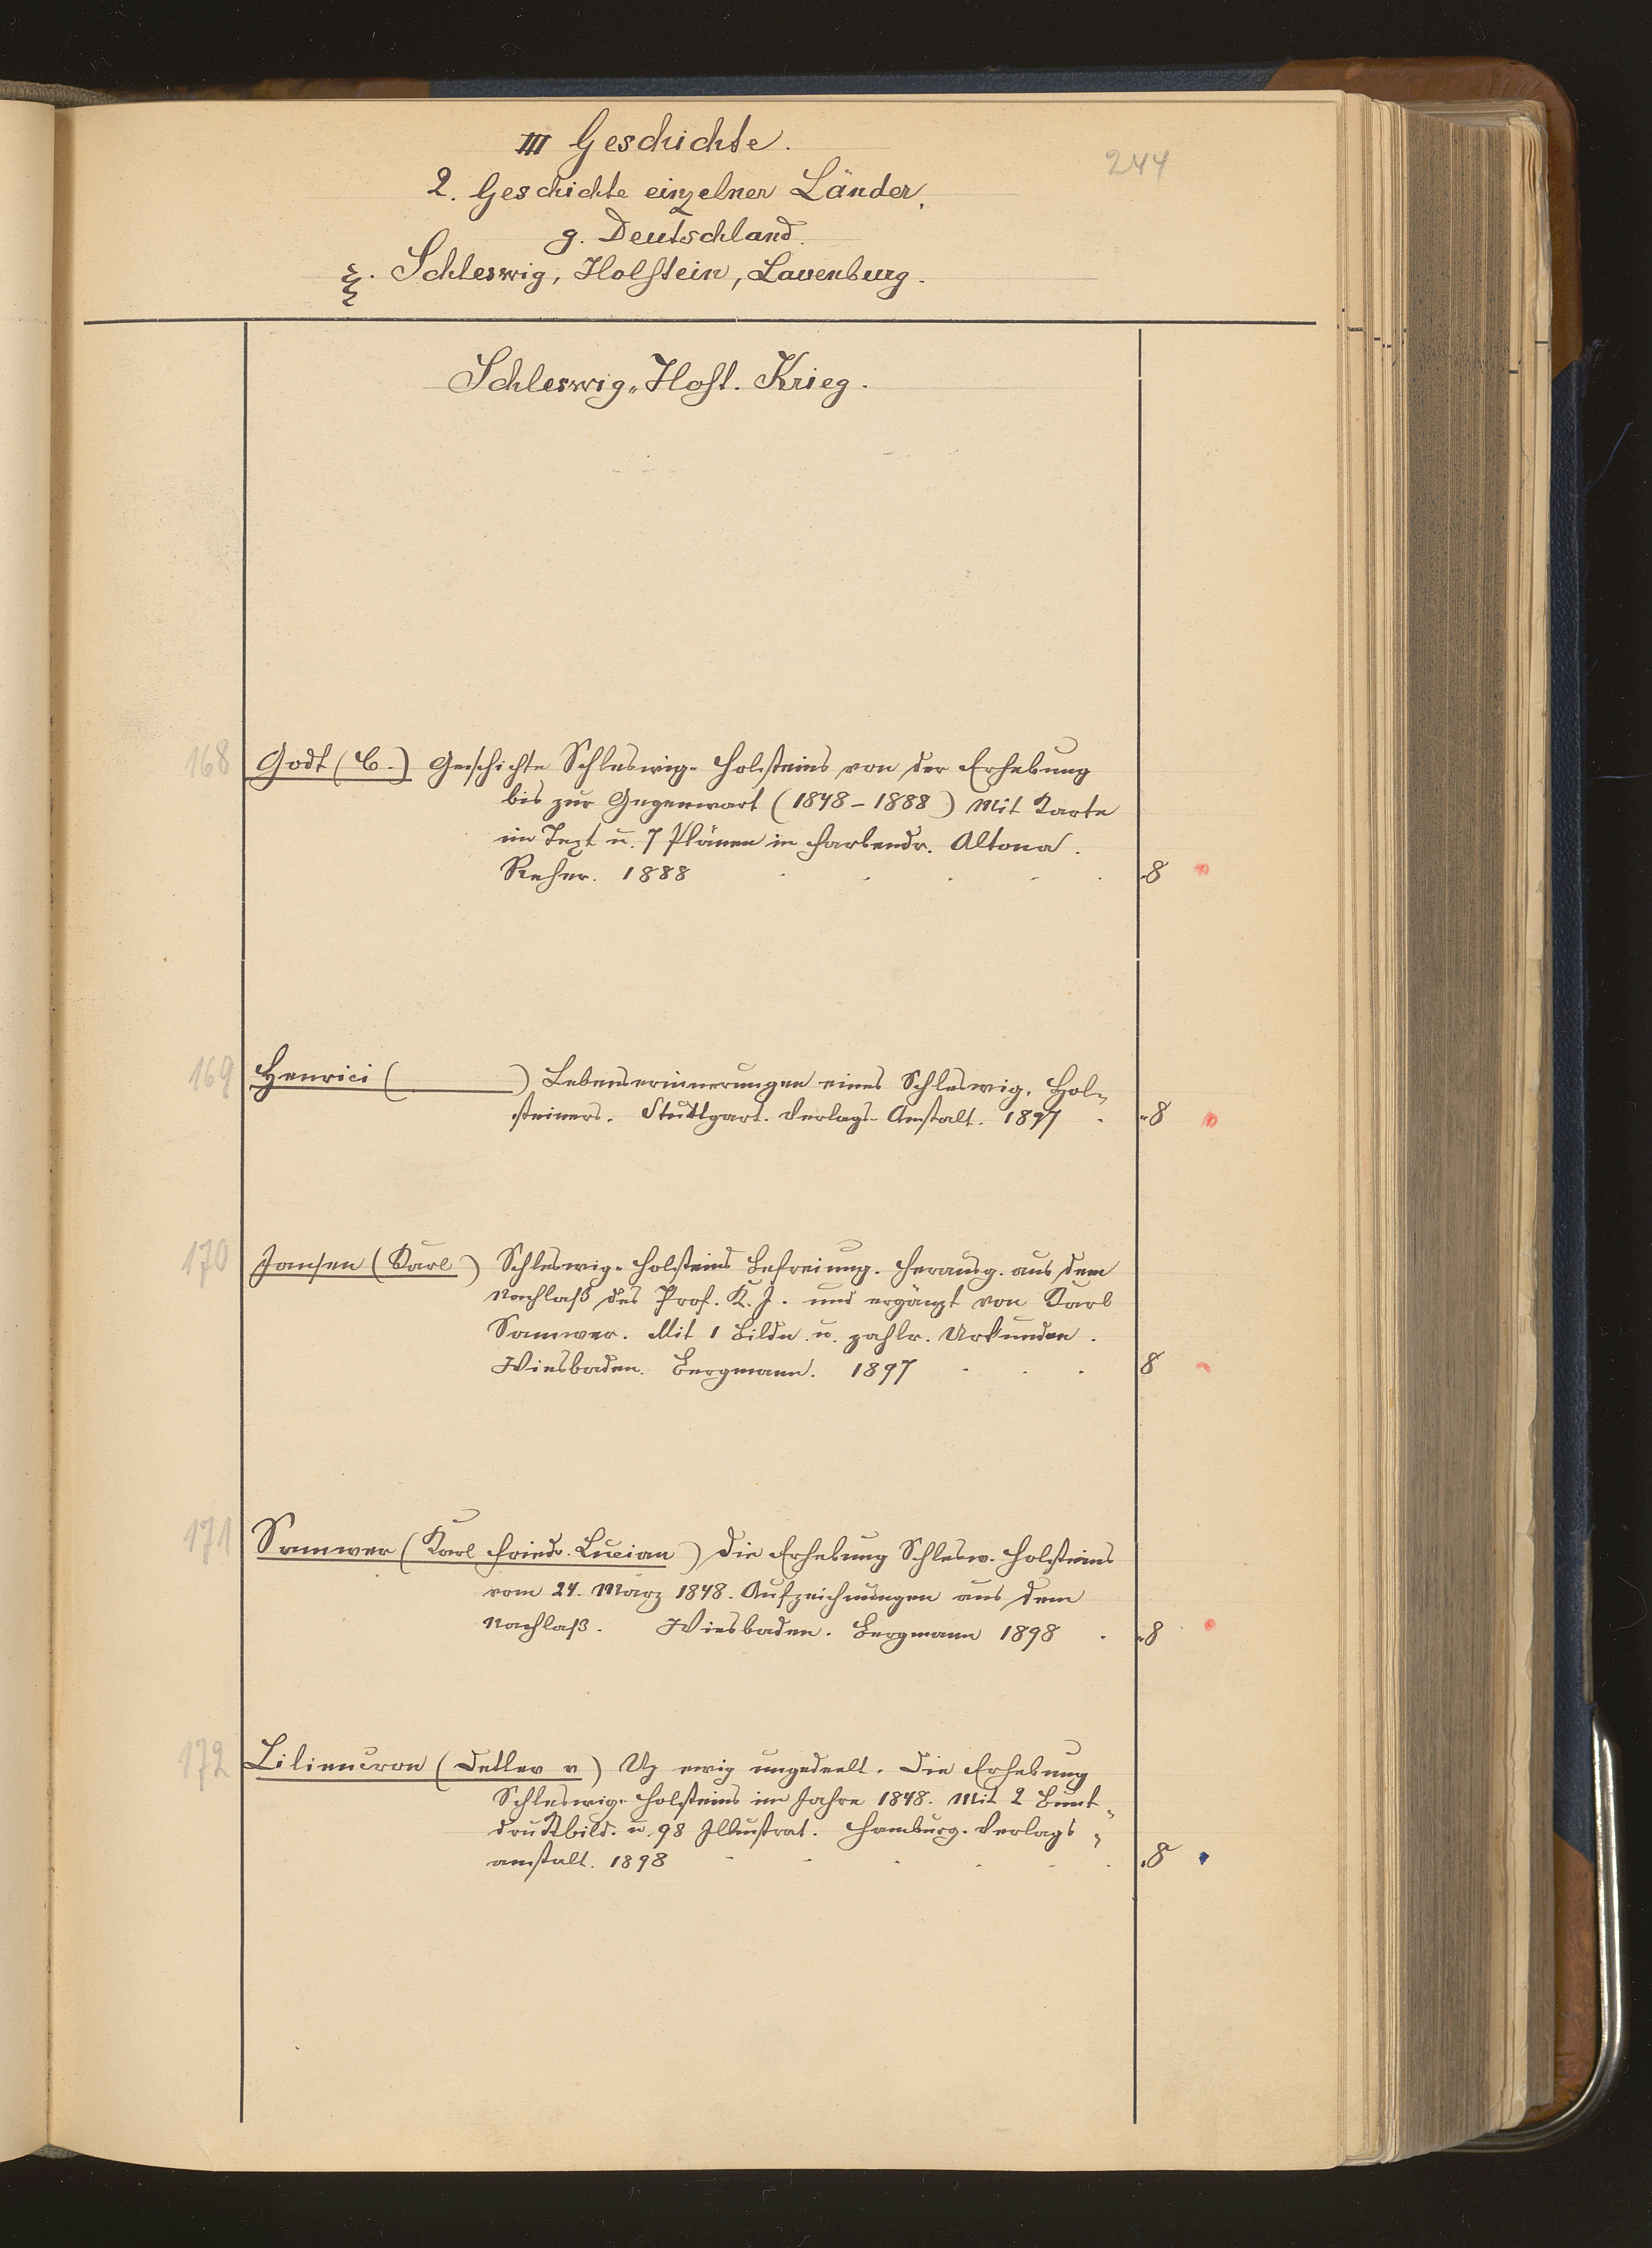 III Geschichte.
244
2. Geschichte einzelner Länder.
g. Deutschland.
ξ. Schleswig, Holstein, Lauenburg.
Schleswig-Holst. Krieg.
168 Godt (C.) Geschichte Schleswig-Holsteins von der Erhebung
bis zur Gegenwart (1848-1888) Mit Karte
im Text u. 7 Plänen in Farbendr. Altona.
Reher. 1888 . . . . . 8
169 Henrici ( ) Lebenserinnerungen eines Schleswig-Hol-
steiners. Stuttgart. Verlags-Anstalt. 1897 . 8
170 Jansen (Karl) Schleswig-Holsteins Befreiung. Herausg. aus dem
Nachlaß des Prof. K. J. und ergänzt von Karl
Samwer. Mit 1 Bildn. u. zahlr. Urkunden.
Wiesbaden. Bergmann. 1897 . . . 8
171 Samwer (Karl Friedr. Lucian) Die Erhebung Schlesw. Holsteins
vom 24. März 1848. Aufzeichnungen aus dem
Nachlaß. Wiesbaden. Bergmann 1898 . 8
172 Liliencron (Detlev v) Up ewig ungedeelt. Die Erhebung
Schleswig-Holsteins im Jahre 1848. Mit 2 Bunt-
druckbild. u. 98 Illustrat. Hamburg. Verlags-
anstalt. 1898 . . . . . . 8